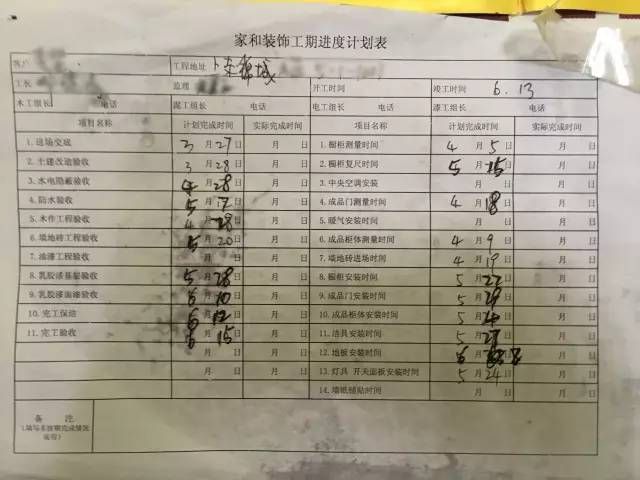 家和装饰工期进度计划表
客户 工程地址
工长 监理 开工时间 竣工时间 6.13
木工组长 电话 泥工组长 电话 电工组长 电话 漆工组长 电话
项目名称 计划完成时间 实际完成时间 项目名称 计划完成时间 实际完成时间
1.进场交底 3月27日 月 日 1.橱柜测量时间 4月5日 月 日
2.土建改造验收 3月28日 月 日 2.橱柜复尺时间 5月15日 月 日
3.水电隐蔽验收 4月28日 月 日 3.中央空调安装 月 日 月 日
4.防水验收 5月17日 月 日 4.成品门测量时间 4月18日 月 日
5.木作工程验收 4月28日 月 日 5.暖气安装时间 月 日 月 日
6.墙地砖工程验收 5月20日 月 日 6.成品柜体测量时间 4月9日 月 日
7.油漆工程验收 月 日 月 日 7.墙地砖进场时间 4月19日 月 日
8.乳胶漆基层验收 5月28日 月 日 8.橱柜安装时间 5月22日 月 日
9.乳胶漆面漆验收 6月10日 月 日 9.成品门安装时间 5月29日 月 日
10.完工保洁 6月12日 月 日 10.成品柜体安装时间 5月24日 月 日
11.完工验收 6月15日 月 日 11.洁具安装时间 5月27日 月 日
月 日 月 日 12.地板安装时间 6月 日 月 日
月 日 月 日 13.灯具 开关面板安装时间 5月24日 月 日
14.墙纸铺贴时间 月 日 月 日
备 注